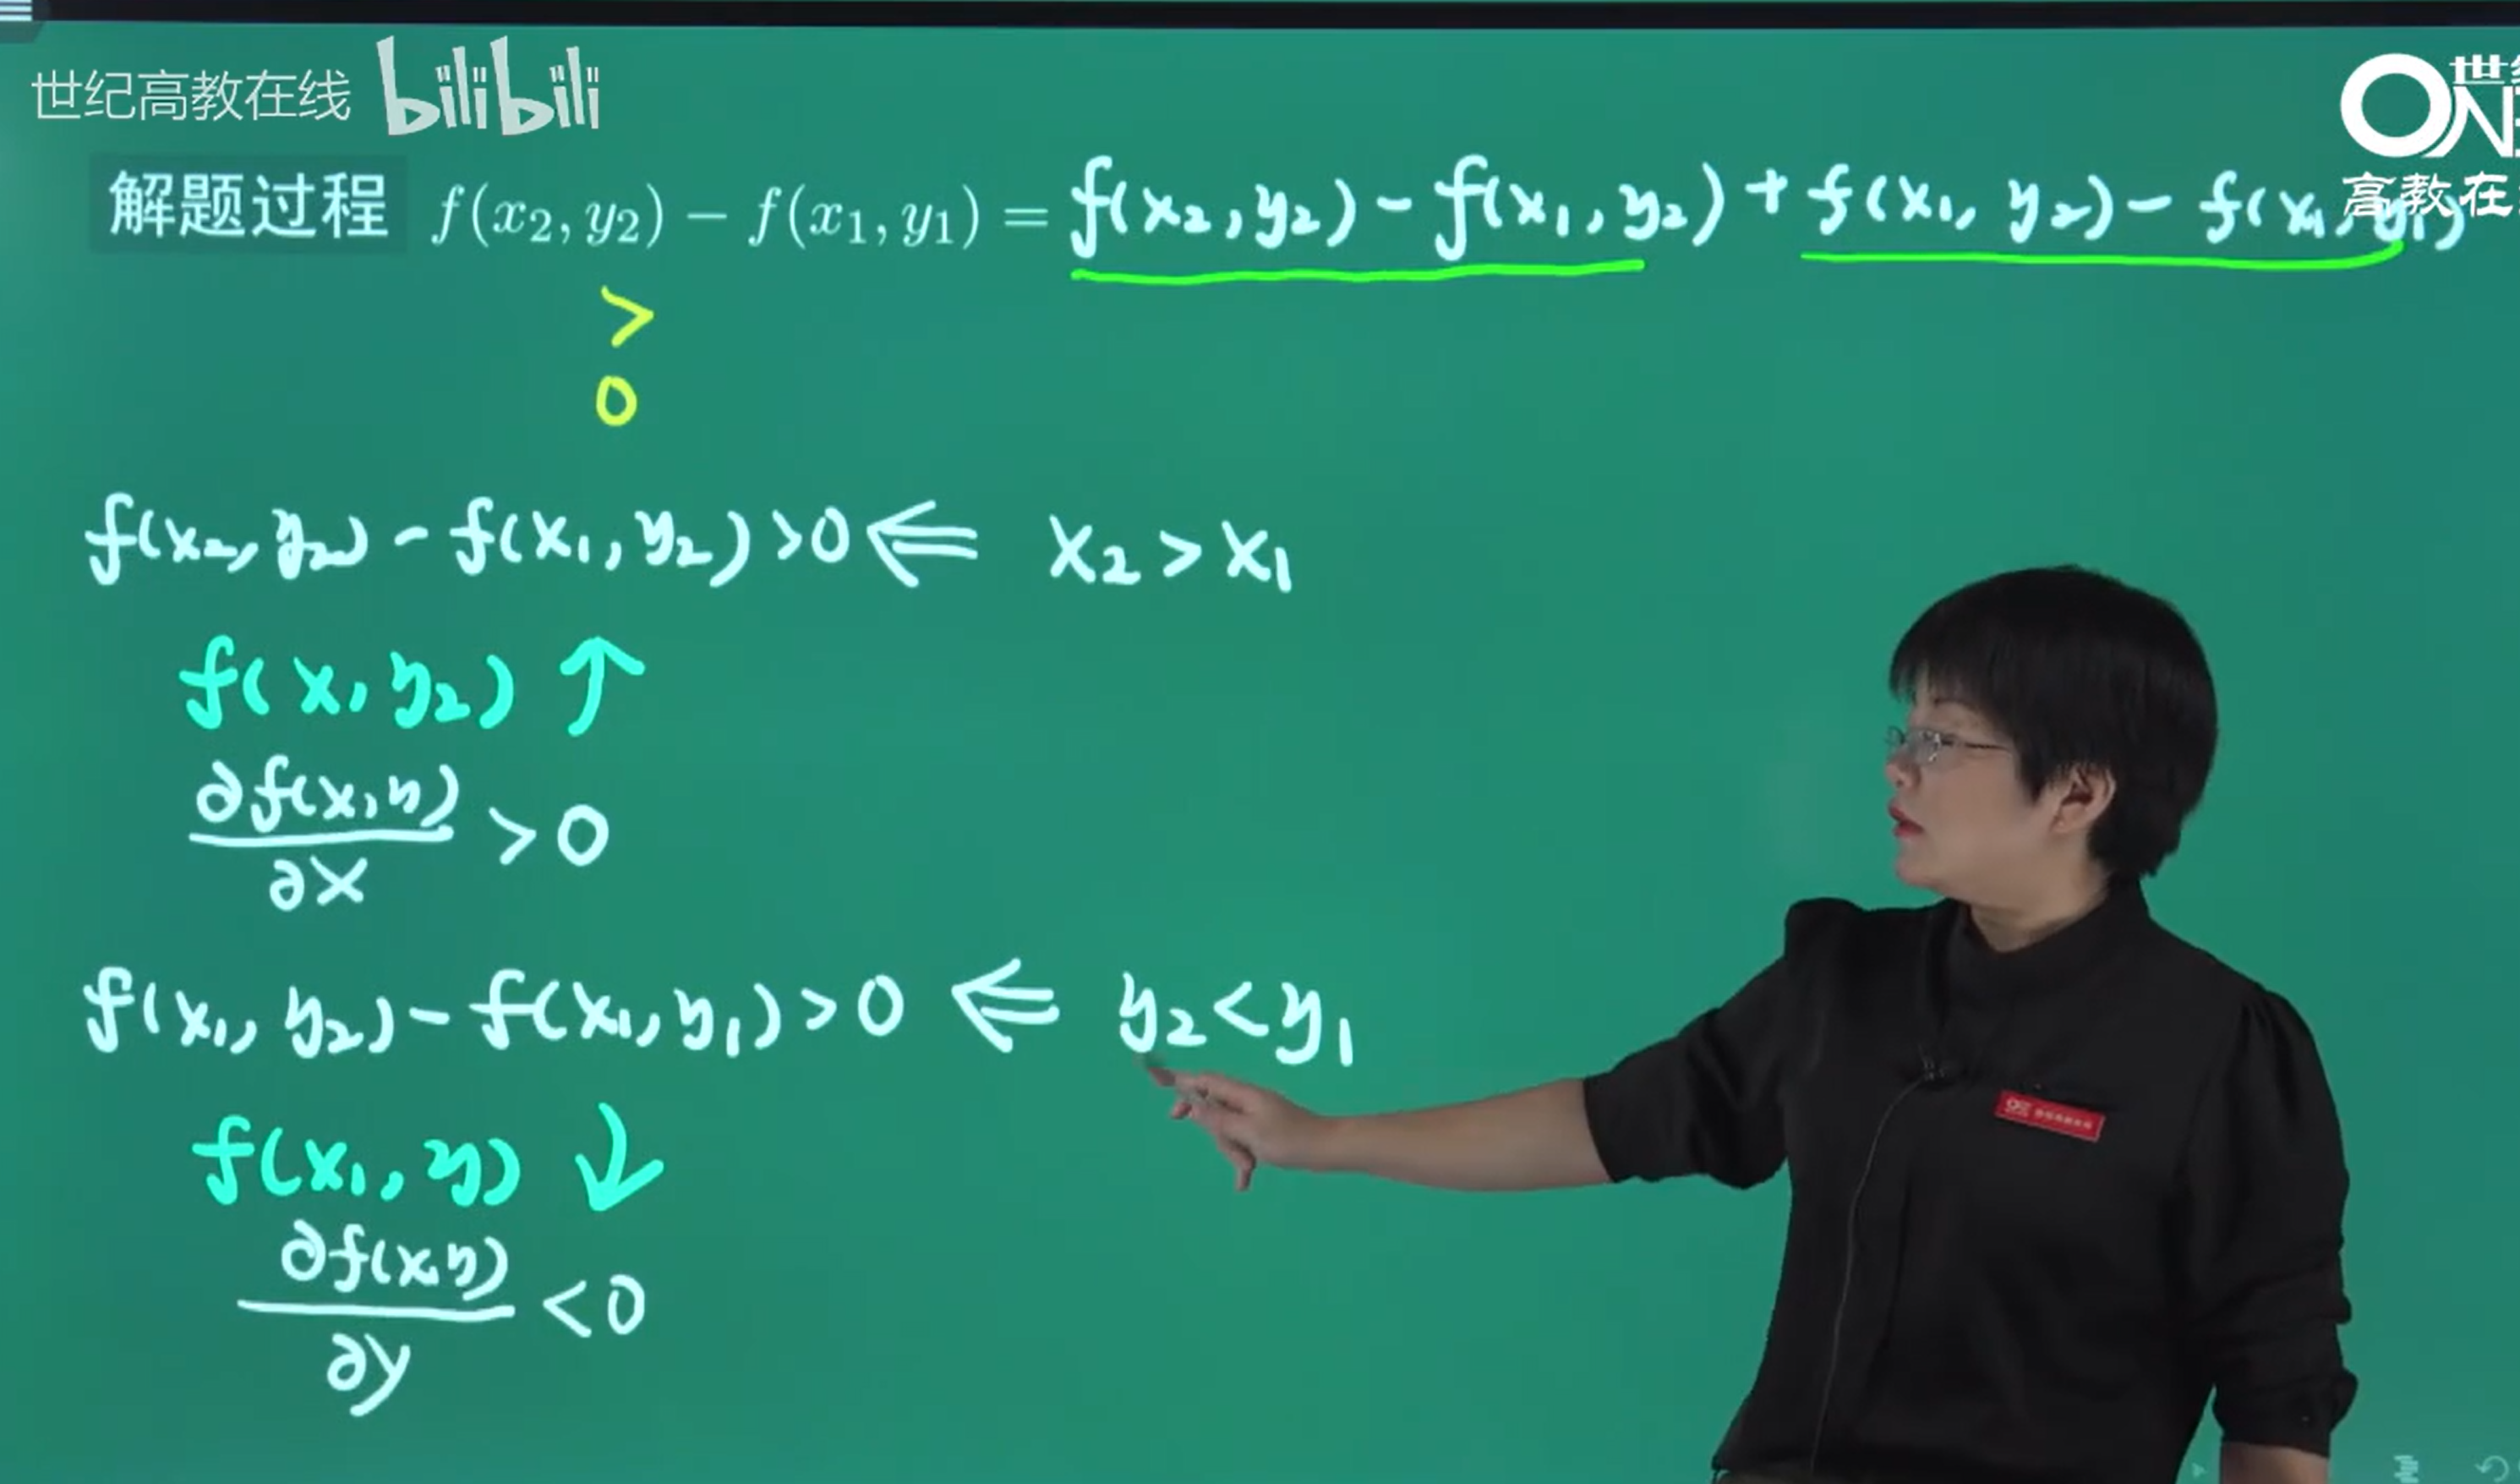 世纪高教在线 bilibili
ONE 世纪
高教在
解题过程 f(x₂, y₂) − f(x₁, y₁) = f(x₂, y₂) − f(x₁, y₂) + f(x₁, y₂) − f(x₁, y₁)
>
0
f(x₂, y₂) − f(x₁, y₂) > 0 ⇐ x₂ > x₁
f(x, y₂) ↑
∂f(x, y)
∂x
> 0
f(x₁, y₂) − f(x₁, y₁) > 0 ⇐ y₂ < y₁
f(x₁, y) ↓
∂f(x, y)
∂y
< 0